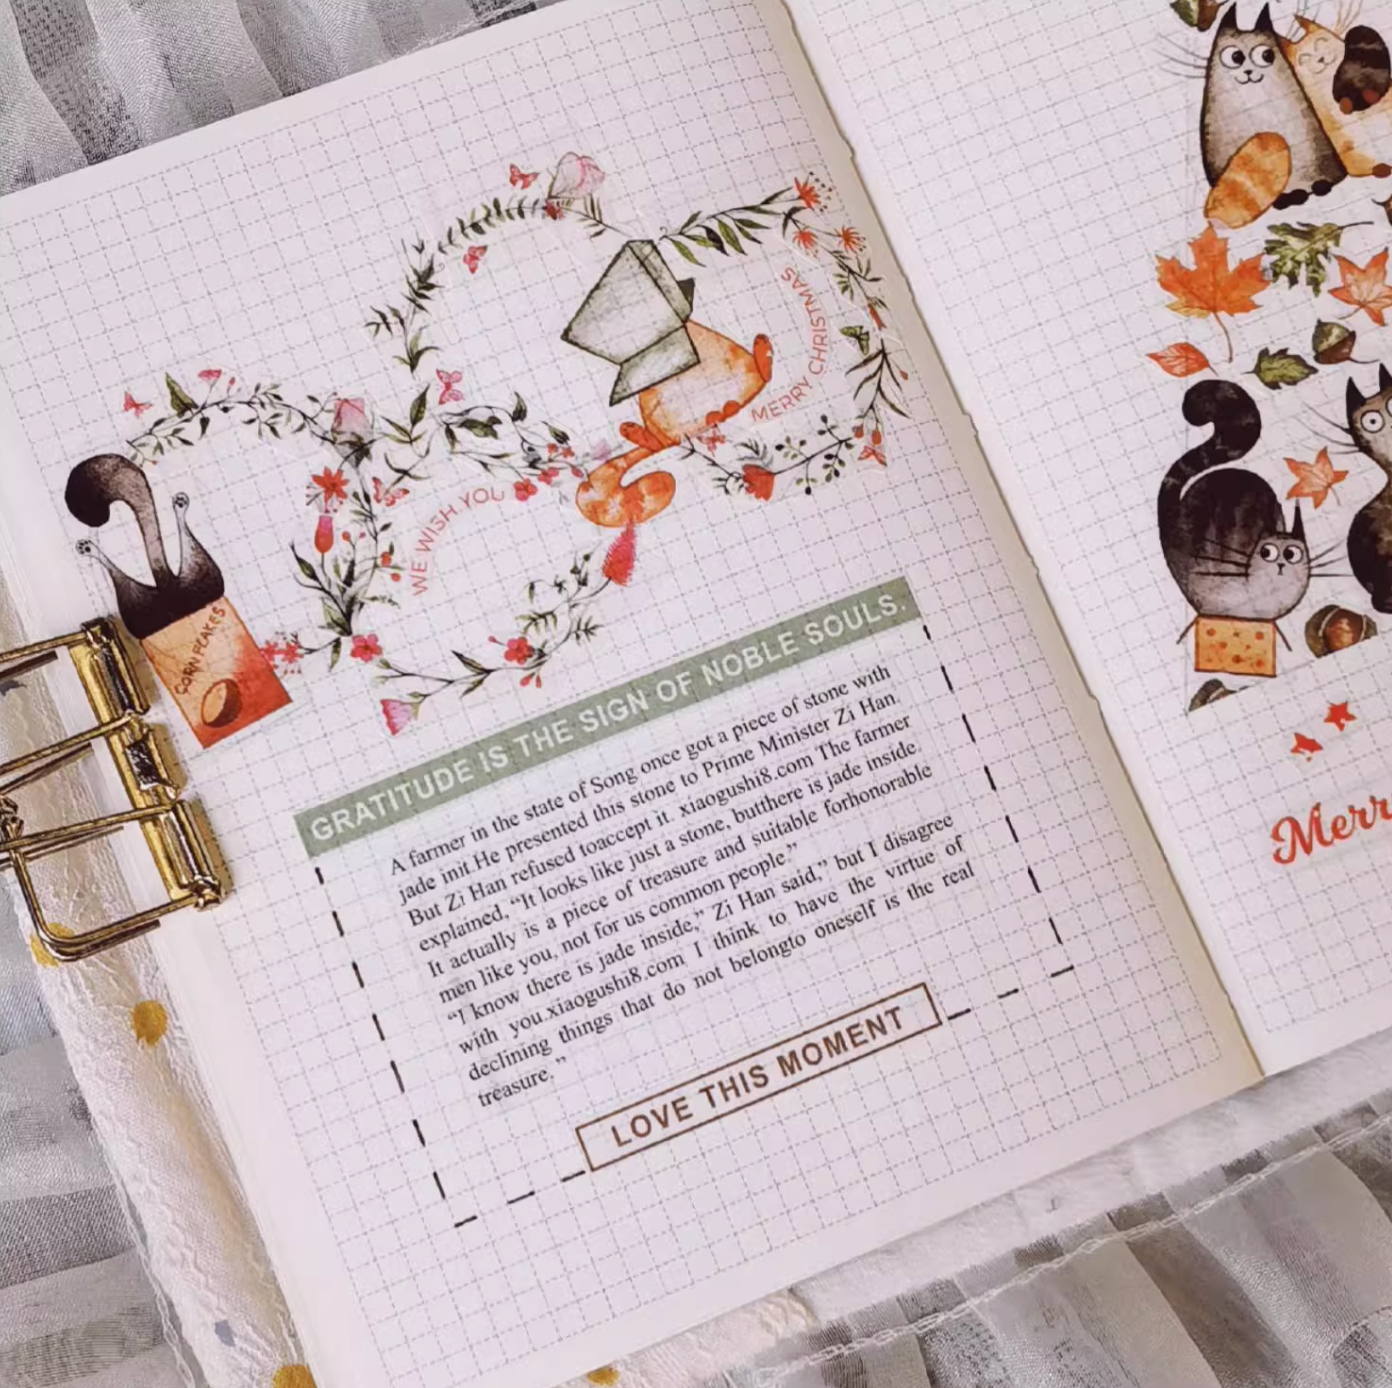 MERRY CHRISTMAS
WE WISH YOU
CORN FLAKES
GRATITUDE IS THE SIGN OF NOBLE SOULS.
A farmer in the state of Song once got a piece of stone with
jade init.He presented this stone to Prime Minister Zi Han.
But Zi Han refused toaccept it. xiaogushi8.com The farmer
explained, “It looks like just a stone, butthere is jade inside.
It actually is a piece of treasure and suitable forhonorable
men like you, not for us common people.”
“I know there is jade inside,” Zi Han said,” but I disagree
with you.xiaogushi8.com I think to have the virtue of
declining things that do not belongto oneself is the real
treasure.”
LOVE THIS MOMENT
Merr